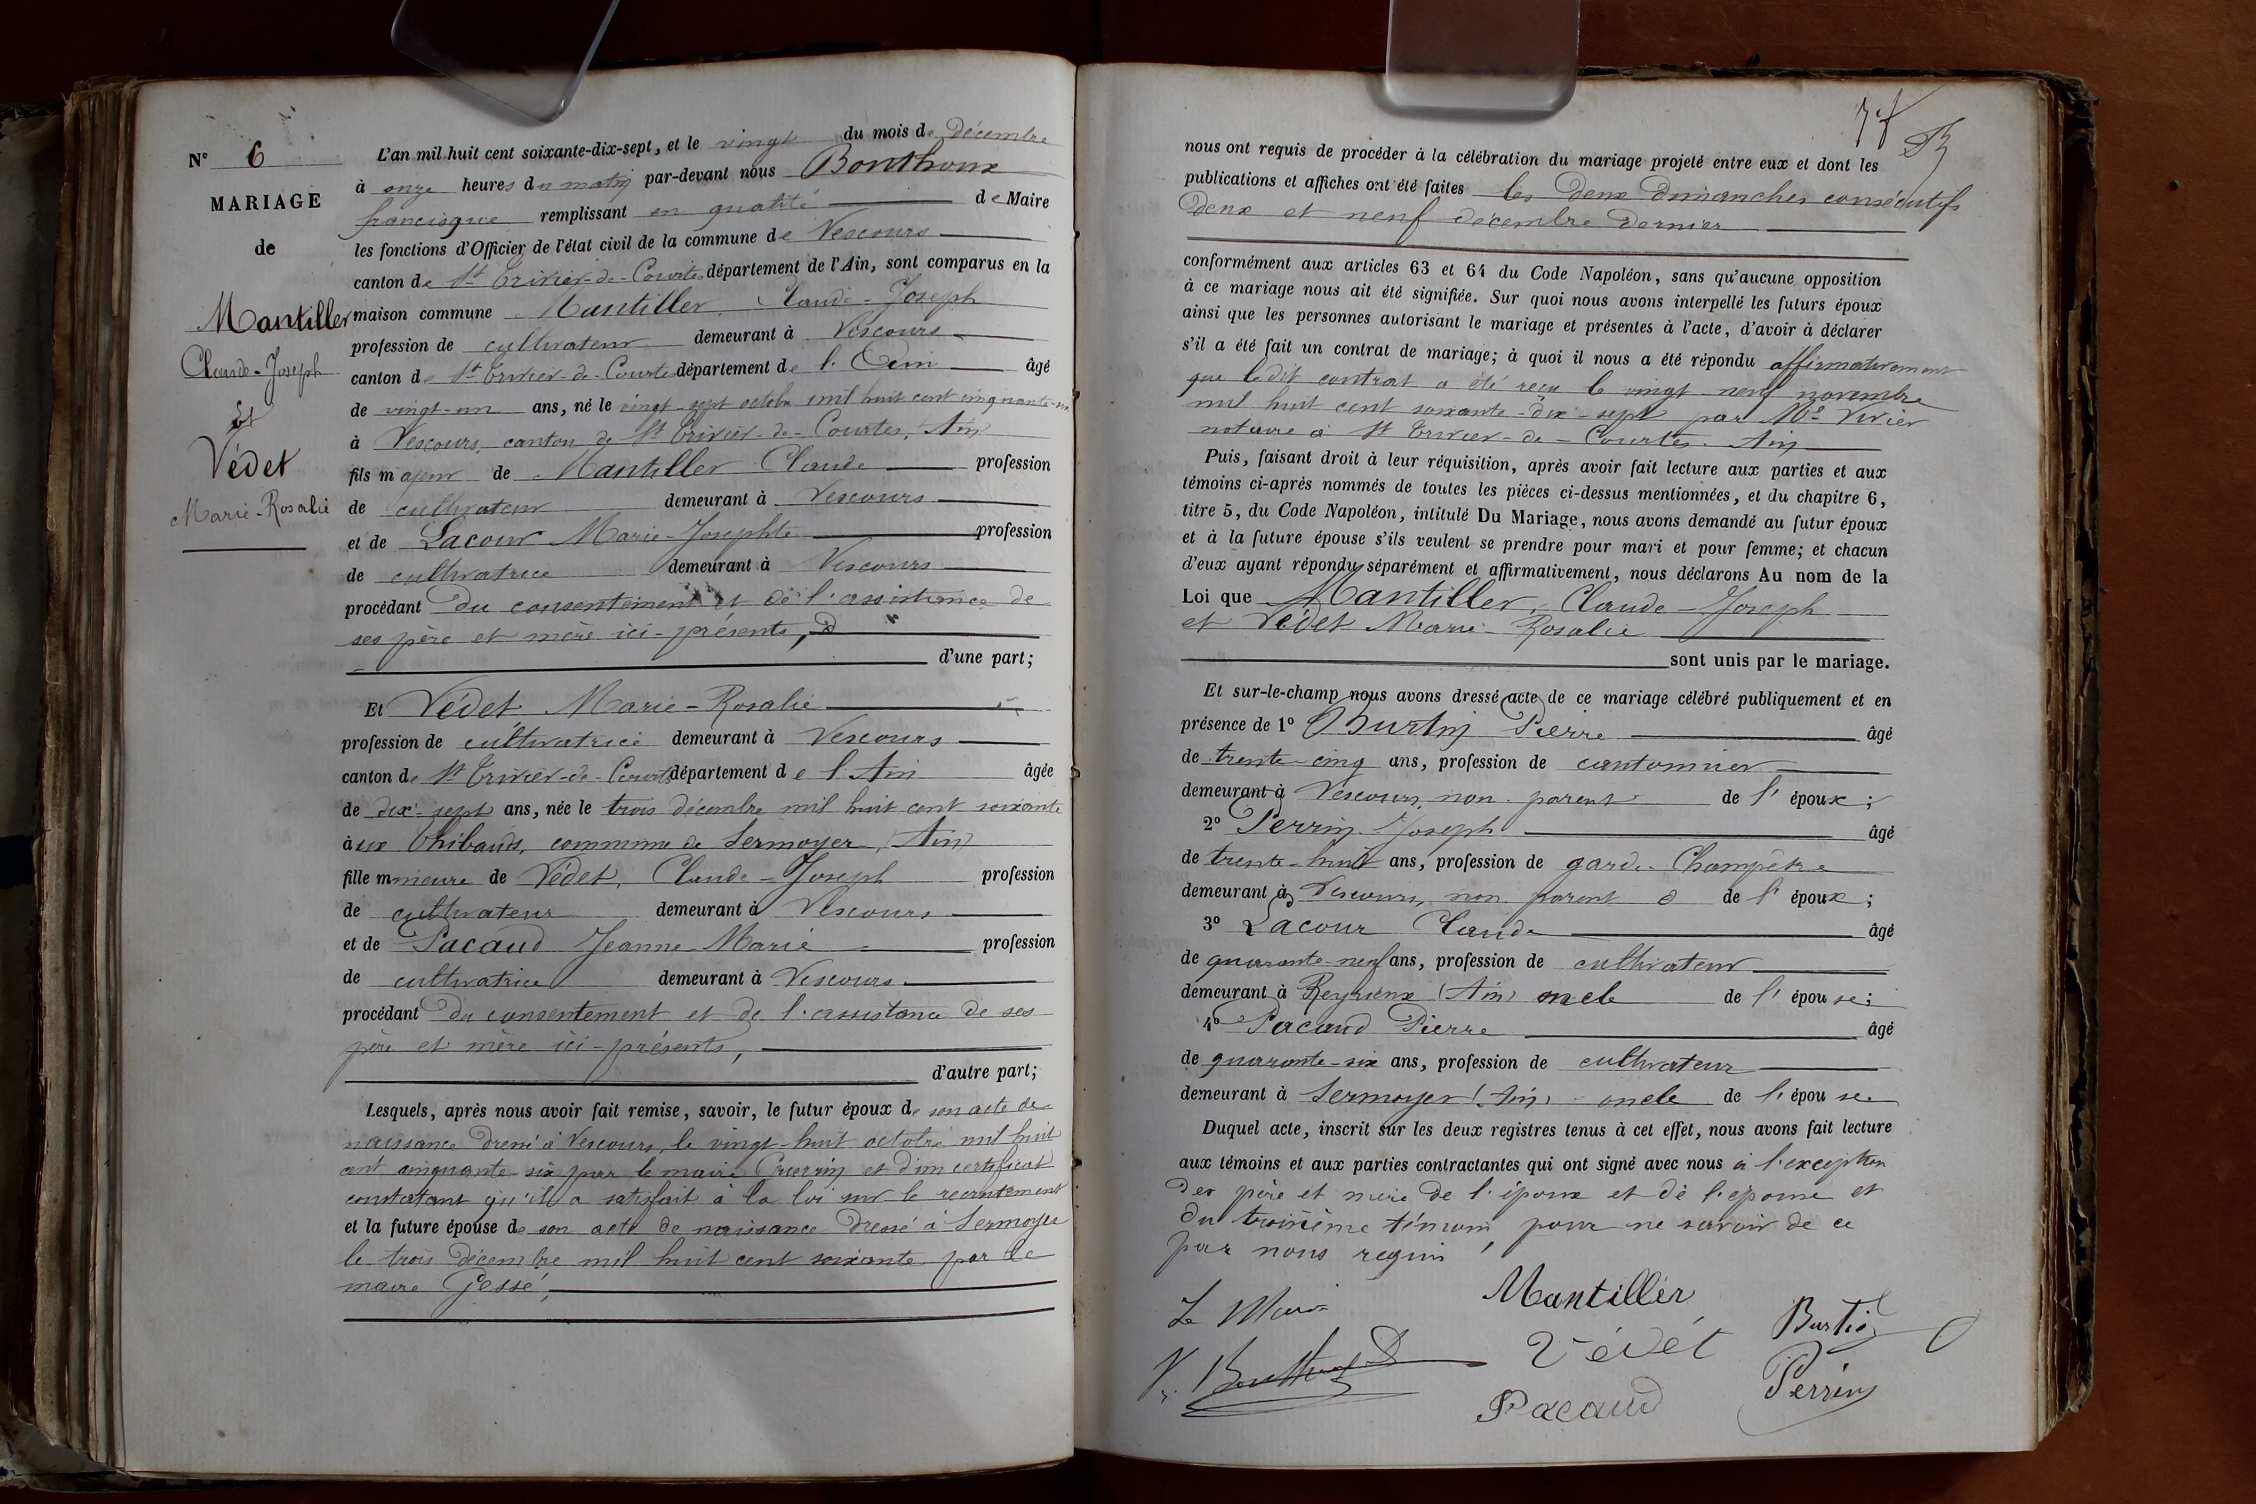 N° 6
MARIAGE
de
Mantiller
Claude-Joseph
Et
Védet
Marie-Rosalie
L'an mil huit cent soixante-dix-sept, et le vingt du mois de décembre
à onze heures du matin par-devant nous Bonthoux
francisque remplissant en qualité de Maire
les fonctions d'Officier de l'état civil de la commune de Vescours
canton de St Trivier-de-Courtes département de l'Ain, sont comparus en la
maison commune Mantiller Claude-Joseph
profession de cultivateur demeurant à Vescours
canton de St Trivier-de-Courtes département de l'Ain âgé
de vingt-un ans, né le vingt-sept octobre mil huit cent cinquante-six
à Vescours, canton de St Trivier-de-Courtes, Ain
fils majeur de Mantiller Claude profession
de cultivateur demeurant à Vescours
et de Lacour Marie-Josephte profession
de cultivatrice demeurant à Vescours
procédant du consentement et de l'assistance de
ses père et mère ici-présents,
d'une part;
Et Védet Marie-Rosalie
profession de cultivatrice demeurant à Vescours
canton de St Trivier-de-Courtes département de l'Ain âgée
de dix-sept ans, née le trois décembre mil huit cent soixante
à ux Thibauds, commune de Sermoyer, (Ain)
fille mineure de Védet, Claude-Joseph profession
de cultivateur demeurant à Vescours
et de Pacaud Jeanne-Marie profession
de cultivatrice demeurant à Vescours
procédant du consentement et de l'assistance de ses
père et mère ici-présents,
d'autre part;
Lesquels, après nous avoir fait remise, savoir, le futur époux de son acte de
naissance dressé à Vescours, le vingt-huit octobre mil huit
cent cinquante-six par le maire Guerrin et d'un certificat
constatant qu'il a satisfait à la loi sur le recrutement
et la future épouse de son acte de naissance dressé à Sermoyer
le trois décembre mil huit cent soixante par le
maire Gessé,
nous ont requis de procéder à la célébration du mariage projeté entre eux et dont les
publications et affiches ont été faites les deux dimanches consécutifs
deux et neuf décembre dernier
conformément aux articles 63 et 64 du Code Napoléon, sans qu'aucune opposition
à ce mariage nous ait été signifiée. Sur quoi nous avons interpellé les futurs époux
ainsi que les personnes autorisant le mariage et présentes à l'acte, d'avoir à déclarer
s'il a été fait un contrat de mariage; à quoi il nous a été répondu affirmativement
que ledit contrat a été reçu le vingt-neuf novembre
mil huit cent soixante-dix-sept par Me Vivier
notaire à St Trivier-de-Courtes. Ain
Puis, faisant droit à leur réquisition, après avoir fait lecture aux parties et aux
témoins ci-après nommés de toutes les pièces ci-dessus mentionnées, et du chapitre 6,
titre 5, du Code Napoléon, intitulé Du Mariage, nous avons demandé au futur époux
et à la future épouse s'ils veulent se prendre pour mari et pour femme; et chacun
d'eux ayant répondu séparément et affirmativement, nous déclarons Au nom de la
Loi que Mantiller, Claude-Joseph
et Védet Marie-Rosalie
sont unis par le mariage.
Et sur-le-champ nous avons dressé acte de ce mariage célébré publiquement et en
présence de 1° Burtin Pierre âgé
de trente-cinq ans, profession de cantonnier
demeurant à Vescours, non parent de l'époux;
2° Perrin Joseph âgé
de trente-huit ans, profession de garde-Champêtre
demeurant à Vescours, non parent de l'époux;
3° Lacour Claude âgé
de quarante-neuf ans, profession de cultivateur
demeurant à Reyrieux (Ain) oncle de l'épouse;
4° Pacaud Pierre âgé
de quarante-six ans, profession de cultivateur
demeurant à Sermoyer (Ain) oncle de l'épouse
Duquel acte, inscrit sur les deux registres tenus à cet effet, nous avons fait lecture
aux témoins et aux parties contractantes qui ont signé avec nous à l'exception
des père et mère de l'époux et de l'épouse et
du troisième témoin, pour ne savoir de ce
par nous requis
Le Maire
Mantiller
Burtin
Védét
Perrin
Pacaud